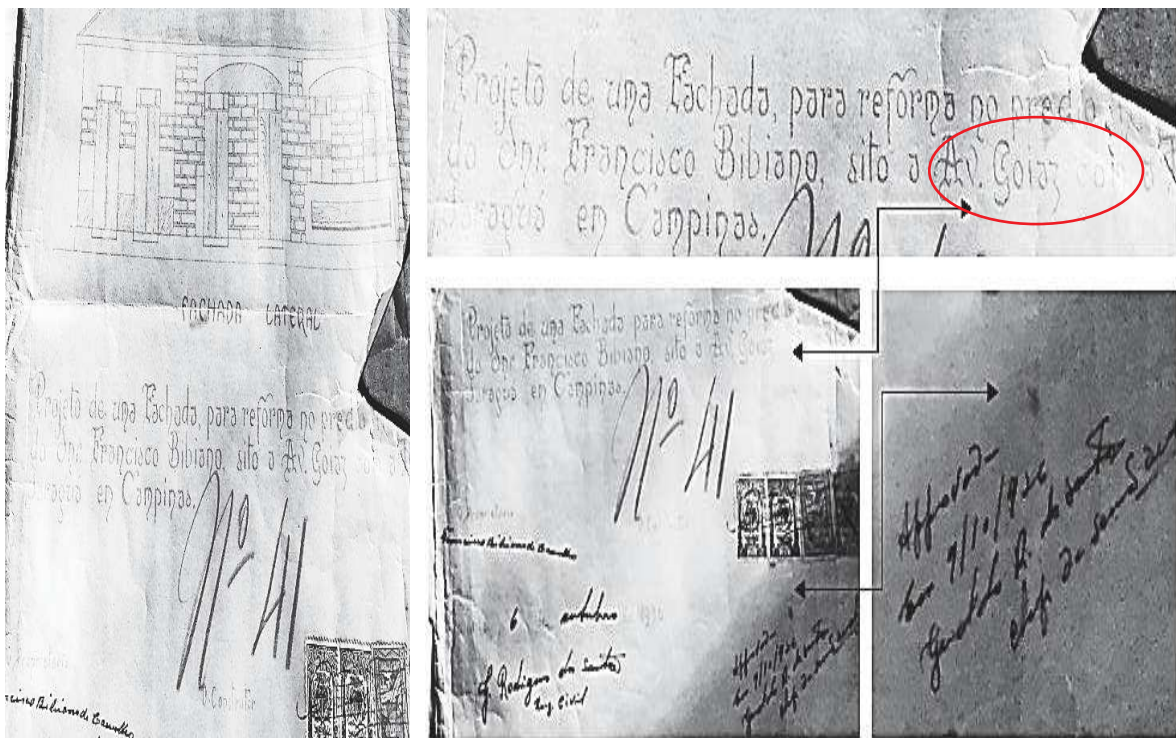 FACHADA LATERAL
Projeto de uma Fachada, para refórma no predio
do Snr. Francisco Bibiano, sito a Av. Goiaz
Jaraguá en Campinas.
Nº 41
O Constructor
Projeto de uma Fachada, para refórma no predio
do Snr. Francisco Bibiano, sito a Av. Goiaz
Jaraguá en Campinas.
Projeto de uma Fachada para refórma no predio
do Snr. Francisco Bibiano, sito a Av. Goiaz
Jaraguá en Campinas.
Nº 41
Francisco Bibiano de Carvalho
6 outubro 1936
Rodrigues dos Santos
Eng. Civil
Approvado
em 9/10/1936
Approvado
em 9/10/1936